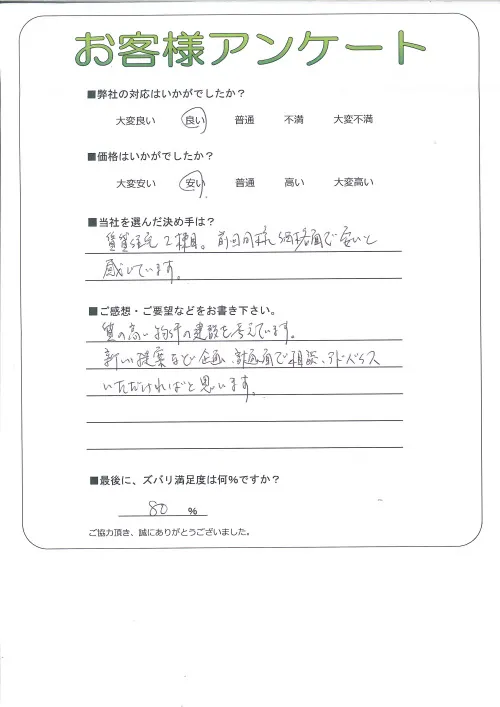 お客様アンケート
■弊社の対応はいかがでしたか?
大変良い 良い 普通 不満 大変不満
■価格はいかがでしたか?
大変安い 安い 普通 高い 大変高い
■当社を選んだ決め手は?
賃貸住宅2棟目。前回同様、価格面で安いと
感じています。
■ご感想・ご要望などをお書き下さい。
質の高い物件の建設を考えています。
新しい提案など企画、計画面で相談、アドバイス
いただければと思います。
■最後に、ズバリ満足度は何%ですか?
80 %
ご協力頂き、誠にありがとうございました。